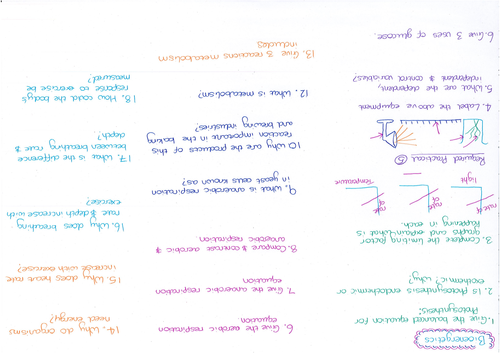 Bioenergetics
1. Give the balanced equation for
Photosynthesis;
2. Is photosynthesis endothermic or
exothermic? Why?
3. Complete the limiting factor
graphs and explain what is
happening each.
rate of
rate of
rate of
light
Temperature
Required Practical 5
4. Label the above equipment
5. What are the dependent,
independent & control variables?
6. Give 3 uses of glucose.
6. Give the aerobic respiration
equation
7. Give the anaerobic respiration
equation
8. Compare & contrast aerobic &
anaerobic respiration
9. What is anaerobic respiration
in yeast cells known as?
10. Why are the products of this
reaction important in the baking
and brewing industries?
12. What is metabolism?
13. Give 3 reactions metabolism
includes
14. Why do organisms
need energy?
15. Why does heart rate
increase with exercise?
16. Why does breathing
rate & depth increase with
exercise?
17. What is the difference
between breathing rate &
depth?
18. How could the body's
response to exercise be
measured?